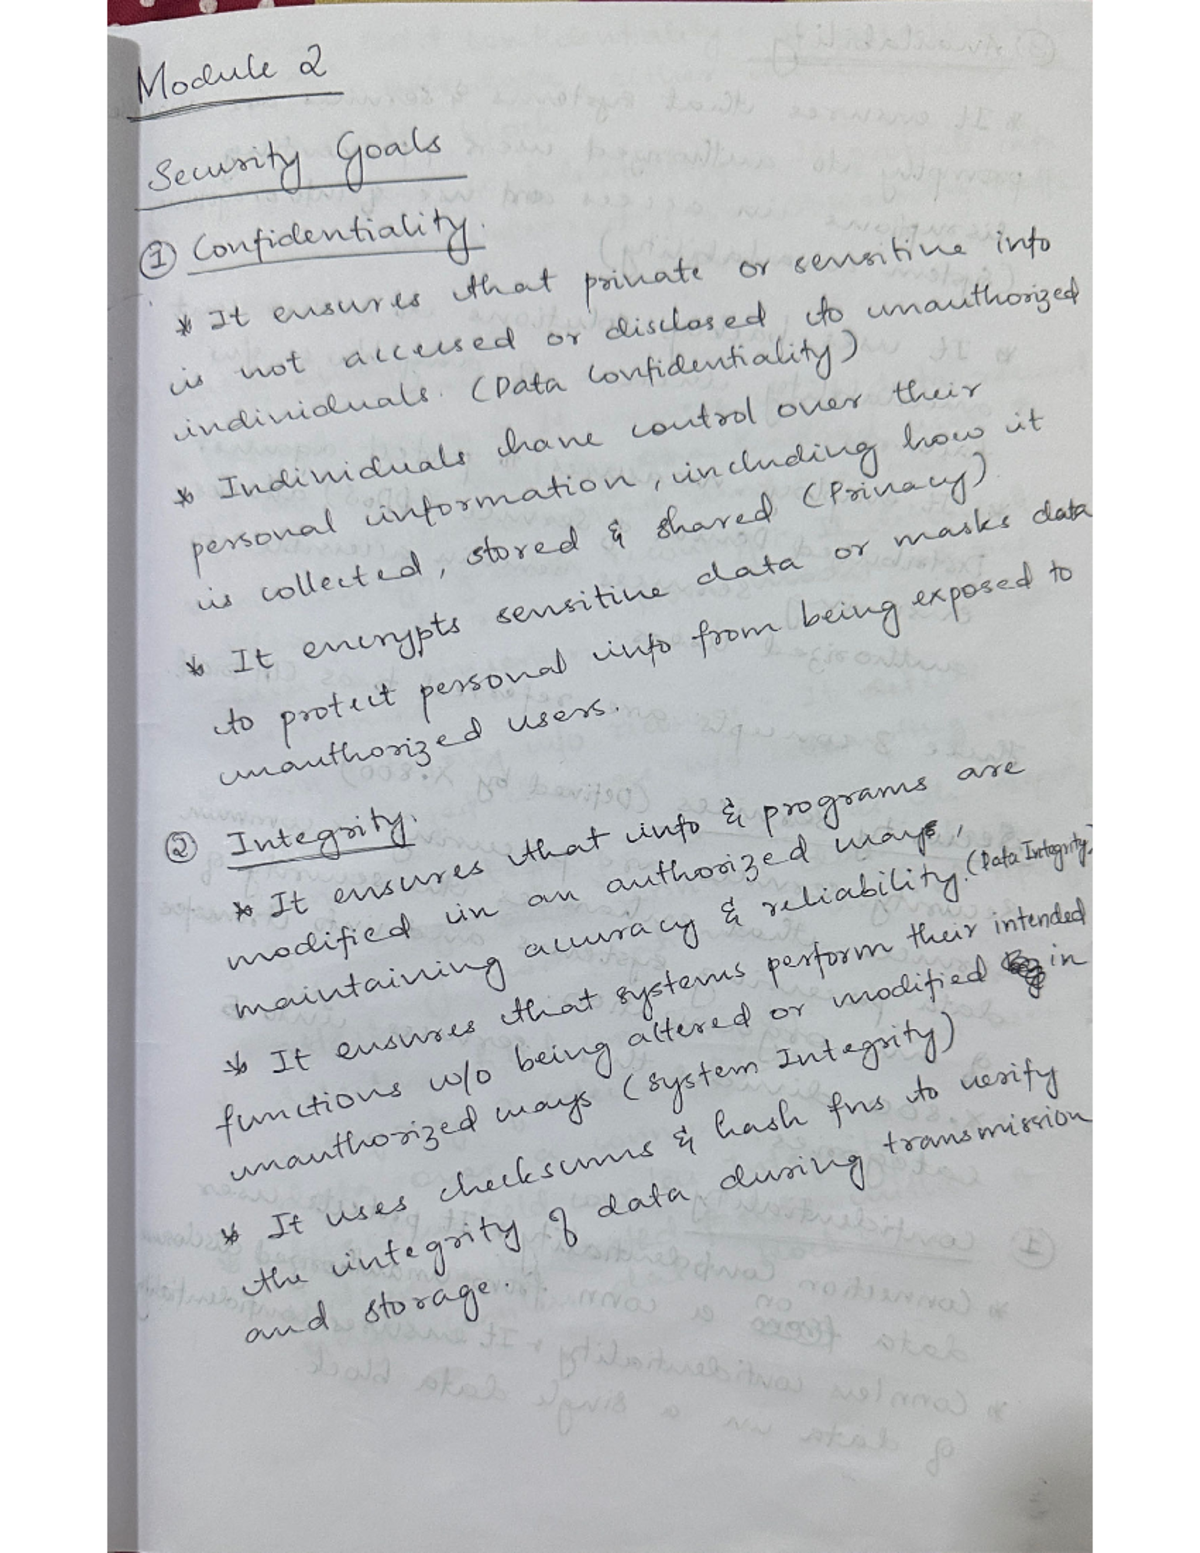 Module 2
Security Goals
① Confidentiality.
* It ensures that private or sensitive info
is not accessed or disclosed to unauthorized
individuals. (Data Confidentiality)
* Individuals have control over their
personal information, including how it
is collected, stored & shared (Privacy)
* It encrypts sensitive data or masks data
to protect personal info from being exposed to
unauthorized users.
② Integrity.
* It ensures that info & programs are
modified in an authorized ways,
maintaining accuracy & reliability. (Data Integrity)
* It ensures that systems perform their intended
functions w/o being altered or modified in
unauthorized ways (System Integrity)
* It uses checksums & hash fns to verify
the integrity of data during transmission
and storage.